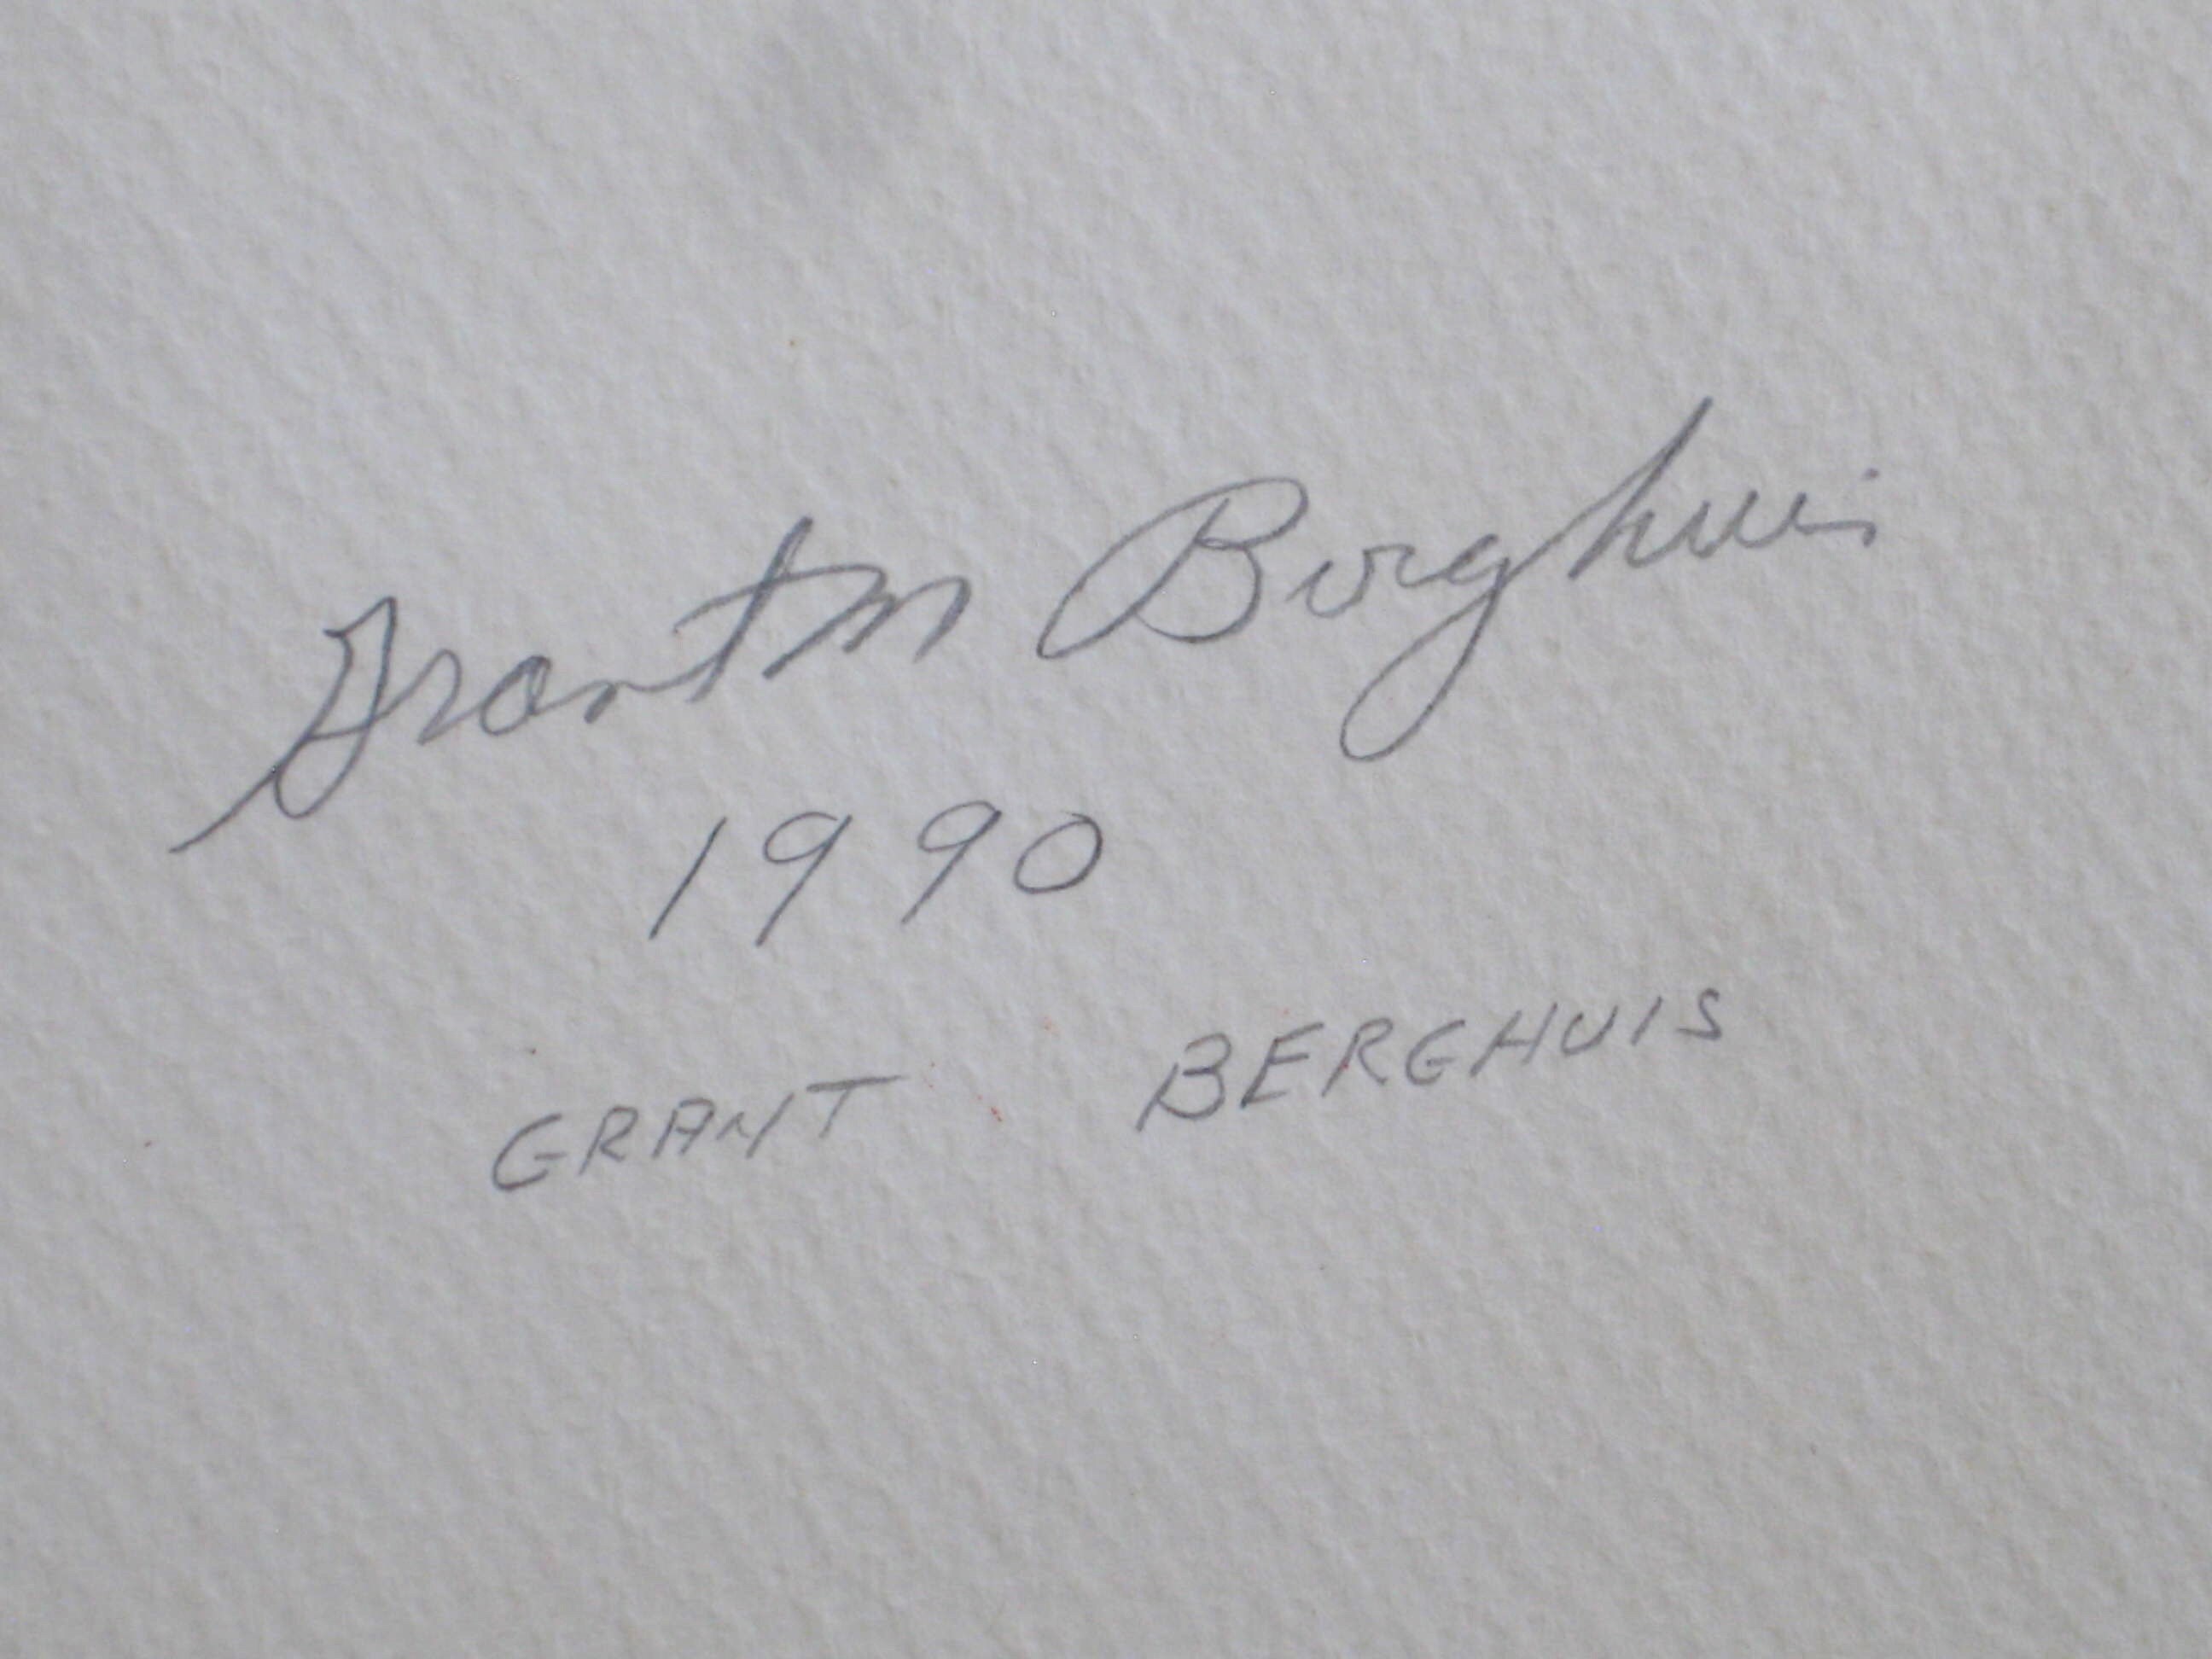 Grant M Berghuis
1990
GRANT BERGHUIS